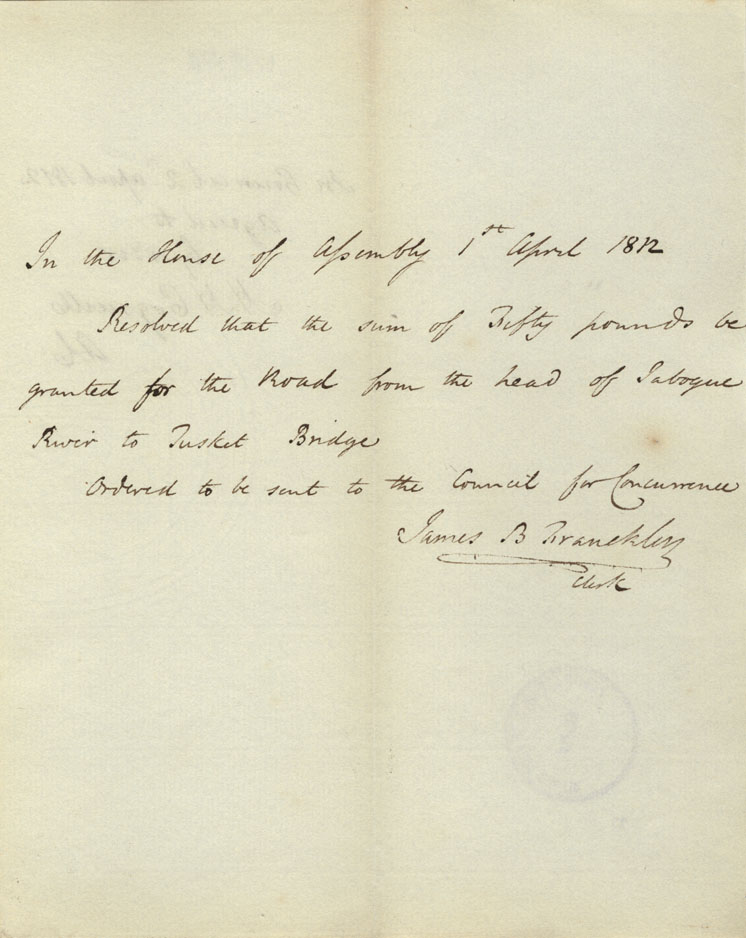 In the House of Assembly 1st April 1812
Resolved that the sum of Fifty pounds be
granted for the Road from the head of Jabogue
River to Tusket Bridge
Ordered to be sent to the Council for Concurrence
James B Franchlin
Clerk
In Council 2 April 1812
Agreed to